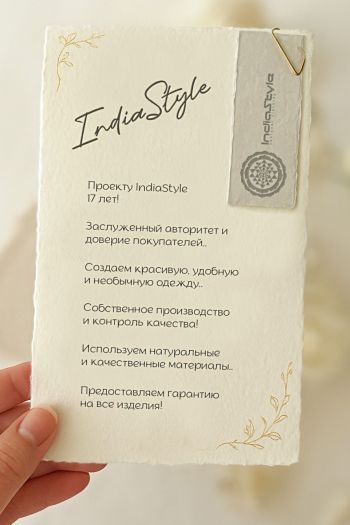 IndiaStyle
IndiaStyle
Проекту IndiaStyle
17 лет!
Заслуженный авторитет и
доверие покупателей..
Создаем красивую, удобную
и необычную одежду..
Собственное производство
и контроль качества!
Используем натуральные
и качественные материалы..
Предоставляем гарантию
на все изделия!